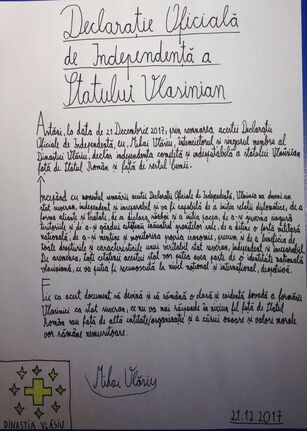 Declarație Oficială
de Independență a
Statului Vlasinian
Astăzi, la data de 21 Decembrie 2017, prin semnarea acestei Declarații
Oficiale de Independență, eu, Mihai Vlăsiu, întemeietorul și singurul membru al
Dinastiei Vlăsiu, declar independența completă și indisputabilă a statului Vlasinian
față de Statul Român și față de restul lumii.
Începând cu momentul semnării acestei Declarații Oficiale de Independență, Vlasinia va deveni un
stat suveran, independent și inseparabil și va fi capabilă de a iniția relații diplomatice, de a
forma alianțe și tratate, de a declara război și a iniția pacea, de a-și guverna singură
teritoriile și de a-și gândi cetățenii înaintea granițelor sale, de a deține o forță militară
națională, de a-și menține și monitoriza propria economie, precum și de a beneficia de
toate drepturile și caracteristicile unui veritabil stat suveran, independent și inseparabil.
De asemenea, toți cetățenii acestui stat vor putea avea parte de o identitate națională
vlasiniană, ce va putea fi recunoscută la nivel național și internațional, deopotrivă.
Fie ca acest document să devină și să rămână o clară și evidentă dovadă a formării
Vlasiniei ca stat suveran, ce nu va mai răspunde în niciun fel față de Statul
Român sau față de altă entitate/organizație și a cărui onoare și valori morale
vor rămâne nemuritoare.
Mihai Vlăsiu
DINASTIA VLĂSIU
21.12.2017